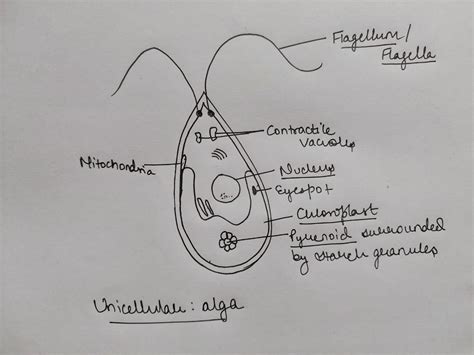 Flagellum/
Flagella
Contractile
Vacuoles
Mitochondria
Nucleus
Eyespot
Chloroplast
Pyrenoid surrounded
by starch granules
Unicellular : alga